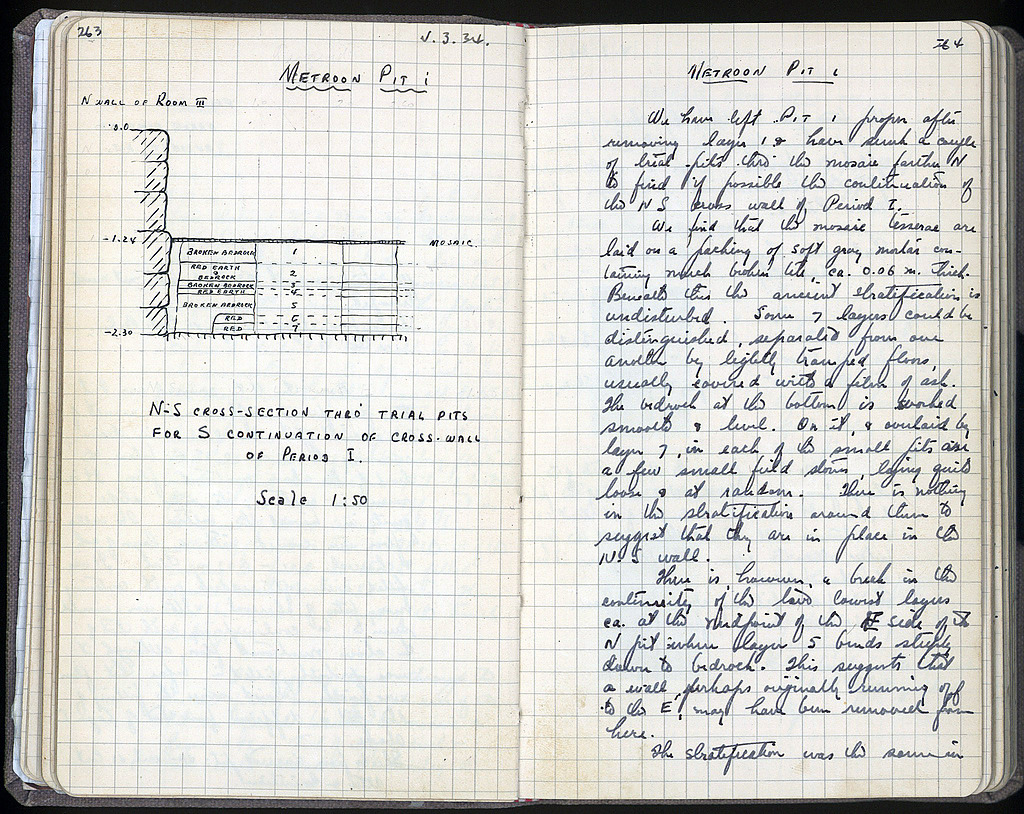 263
V.3.34.
METROON PIT i
N WALL OF ROOM III
-0.0
-1.24
MOSAIC
BROKEN BEDROCK 1
RED EARTH & BEDROCK 2
BROKEN BEDROCK 3
RED EARTH 4
BROKEN BEDROCK 5
RED 6
RED 7
-2.30
N-S CROSS-SECTION THRO' TRIAL PITS
FOR S CONTINUATION OF CROSS-WALL
OF PERIOD I.
Scale 1:50
264
METROON PIT i
We have left Pit 1 proper after
removing layer 1 & have sunk a couple
of trial pits thro' the mosaic farther N
to find if possible the continuation of
the N S cross wall of Period I.
We find that the mosaic tesserae are
laid on a packing of soft gray mortar con-
taining much broken tile, ca. 0.06 m. thick.
Beneath this the ancient stratification is
undisturbed. Some 7 layers could be
distinguished, separated from one
another by lightly tramped floors,
usually covered with a film of ash.
The bedrock at the bottom is worked
smooth & level. On it, & overlaid by
layer 7, in each of the small pits are
a few small field stones, lying quite
loose & at random. There is nothing
in the stratification around them to
suggest that they are in place in the
N-S wall.
There is, however, a break in the
continuity of the two lowest layers
ca. at the midpoint of the E side of the
N pit where layer 5 bends steeply
down to bedrock. This suggests that
a wall, perhaps originally running off
to the E, may have been removed from
here.
The stratification was the same in